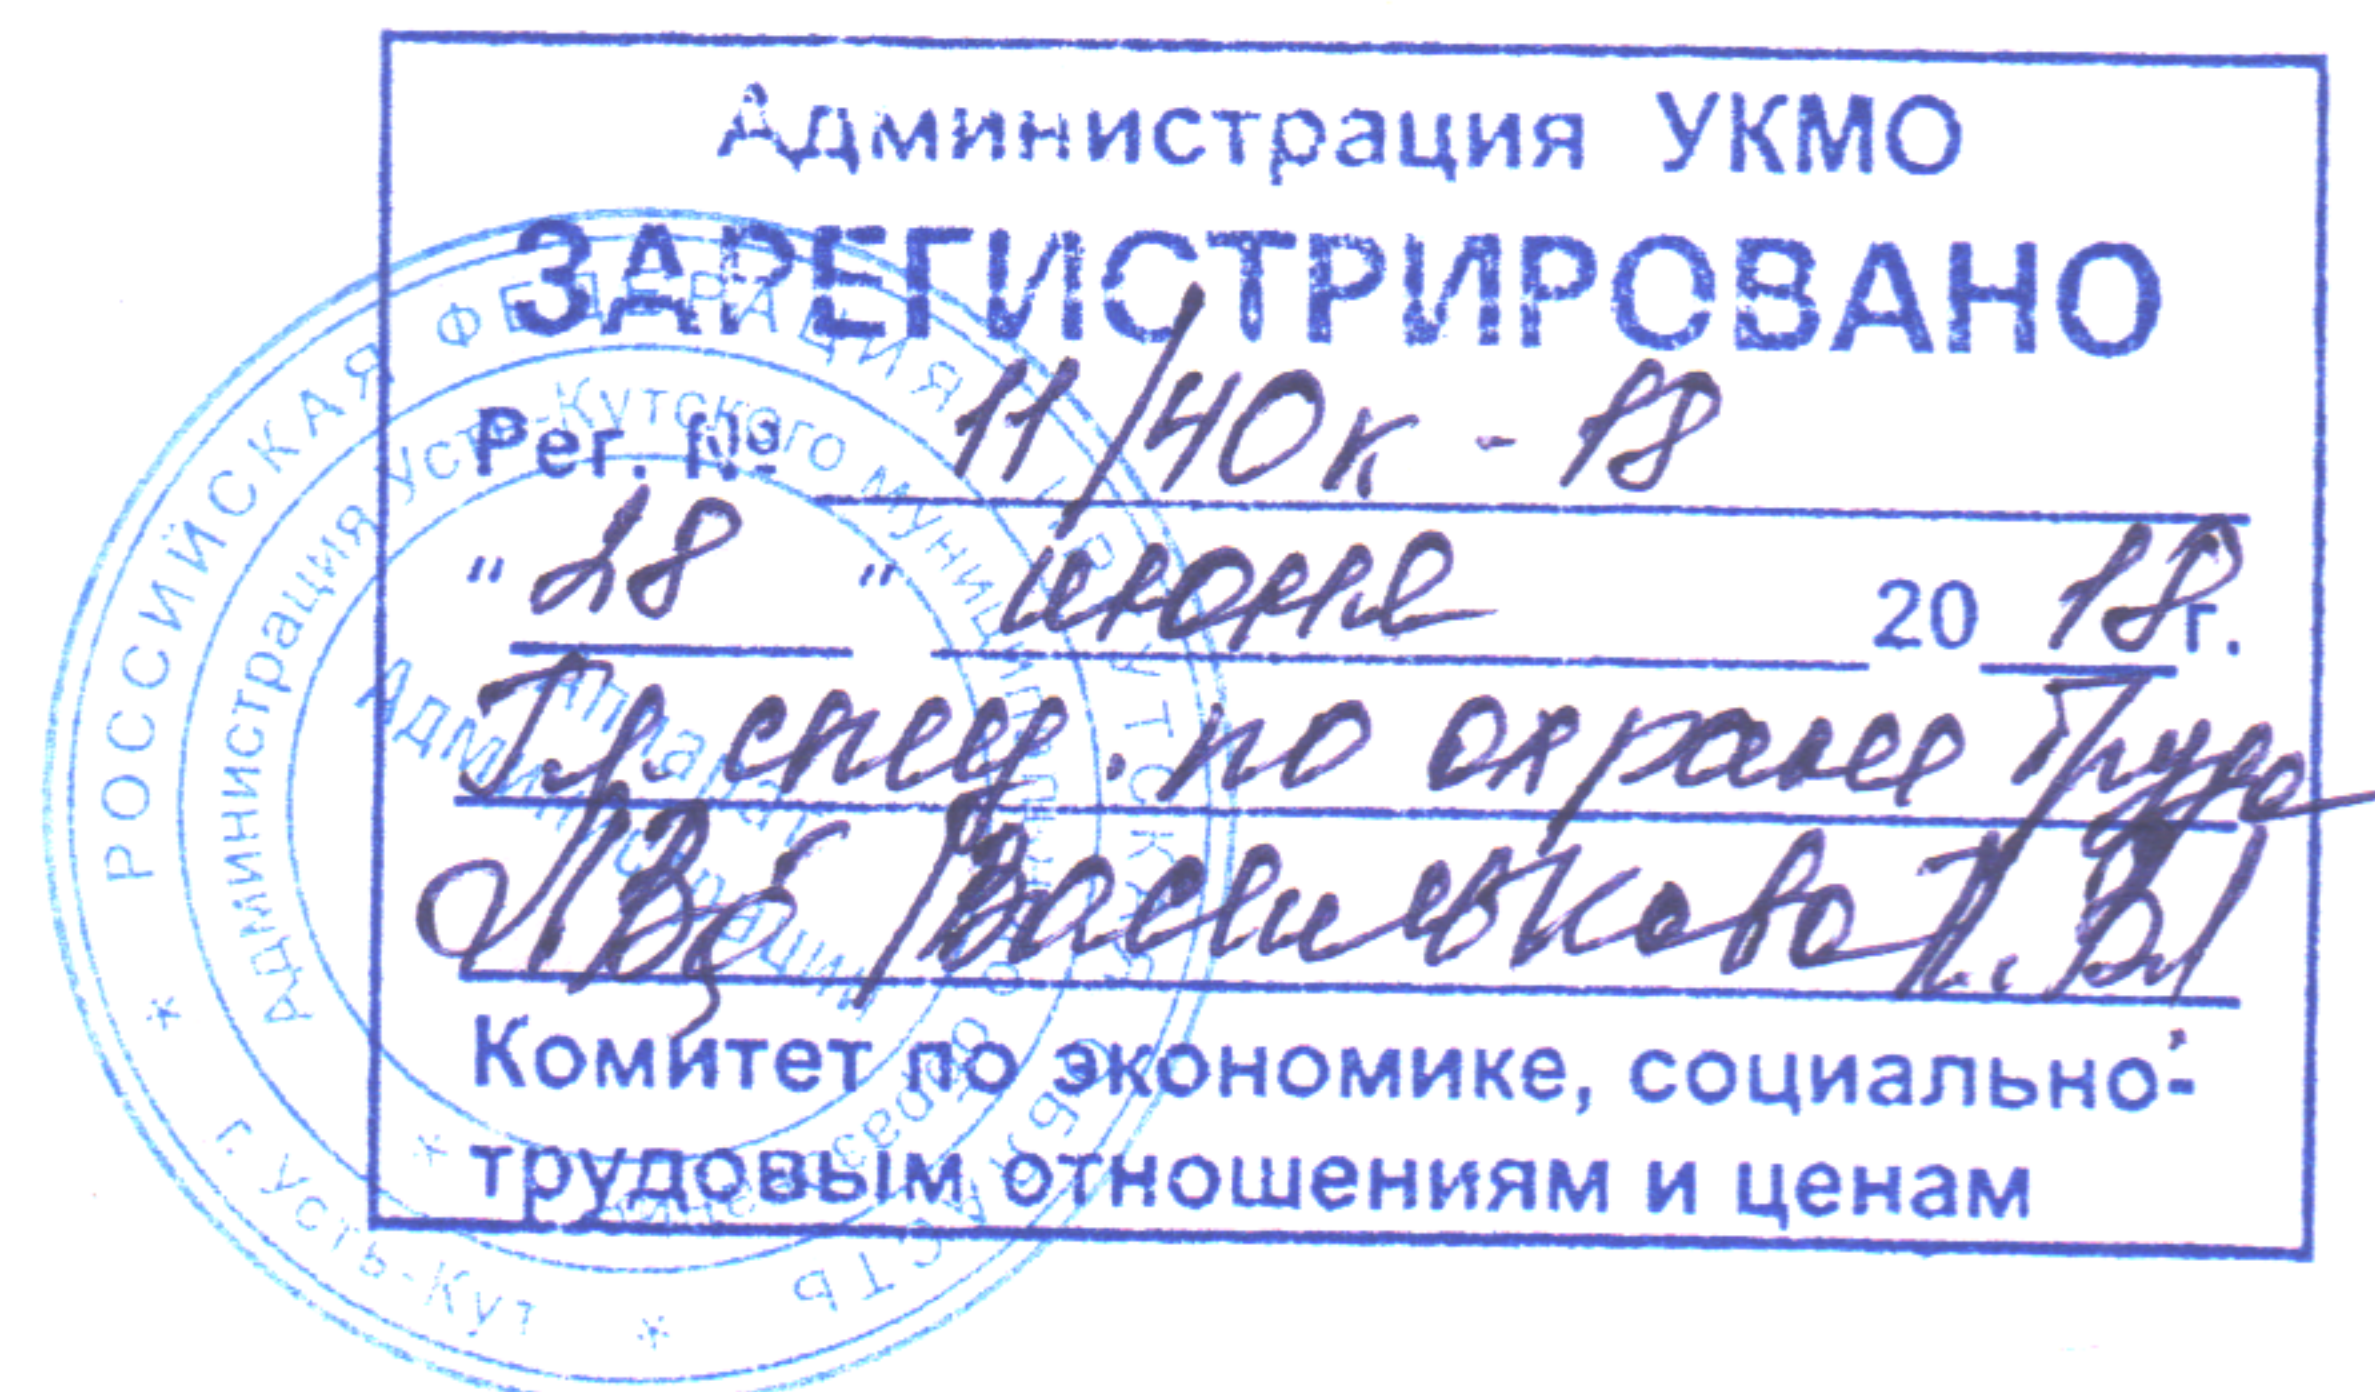 Администрация УКМО
ЗАРЕГИСТРИРОВАНО
Рег. № 11/40к - 18
"28" июня 2018г.
Гл. спец. по охране труда
/Василькова
Комитет по экономике, социально-
трудовым отношениям и ценам
РОССИЙСКАЯ ФЕДЕРАЦИЯ ИРКУТСКАЯ ОБЛАСТЬ
г. Усть-Кут
Администрация Усть-Кутского муниципального образования
Аппарат
Администрации